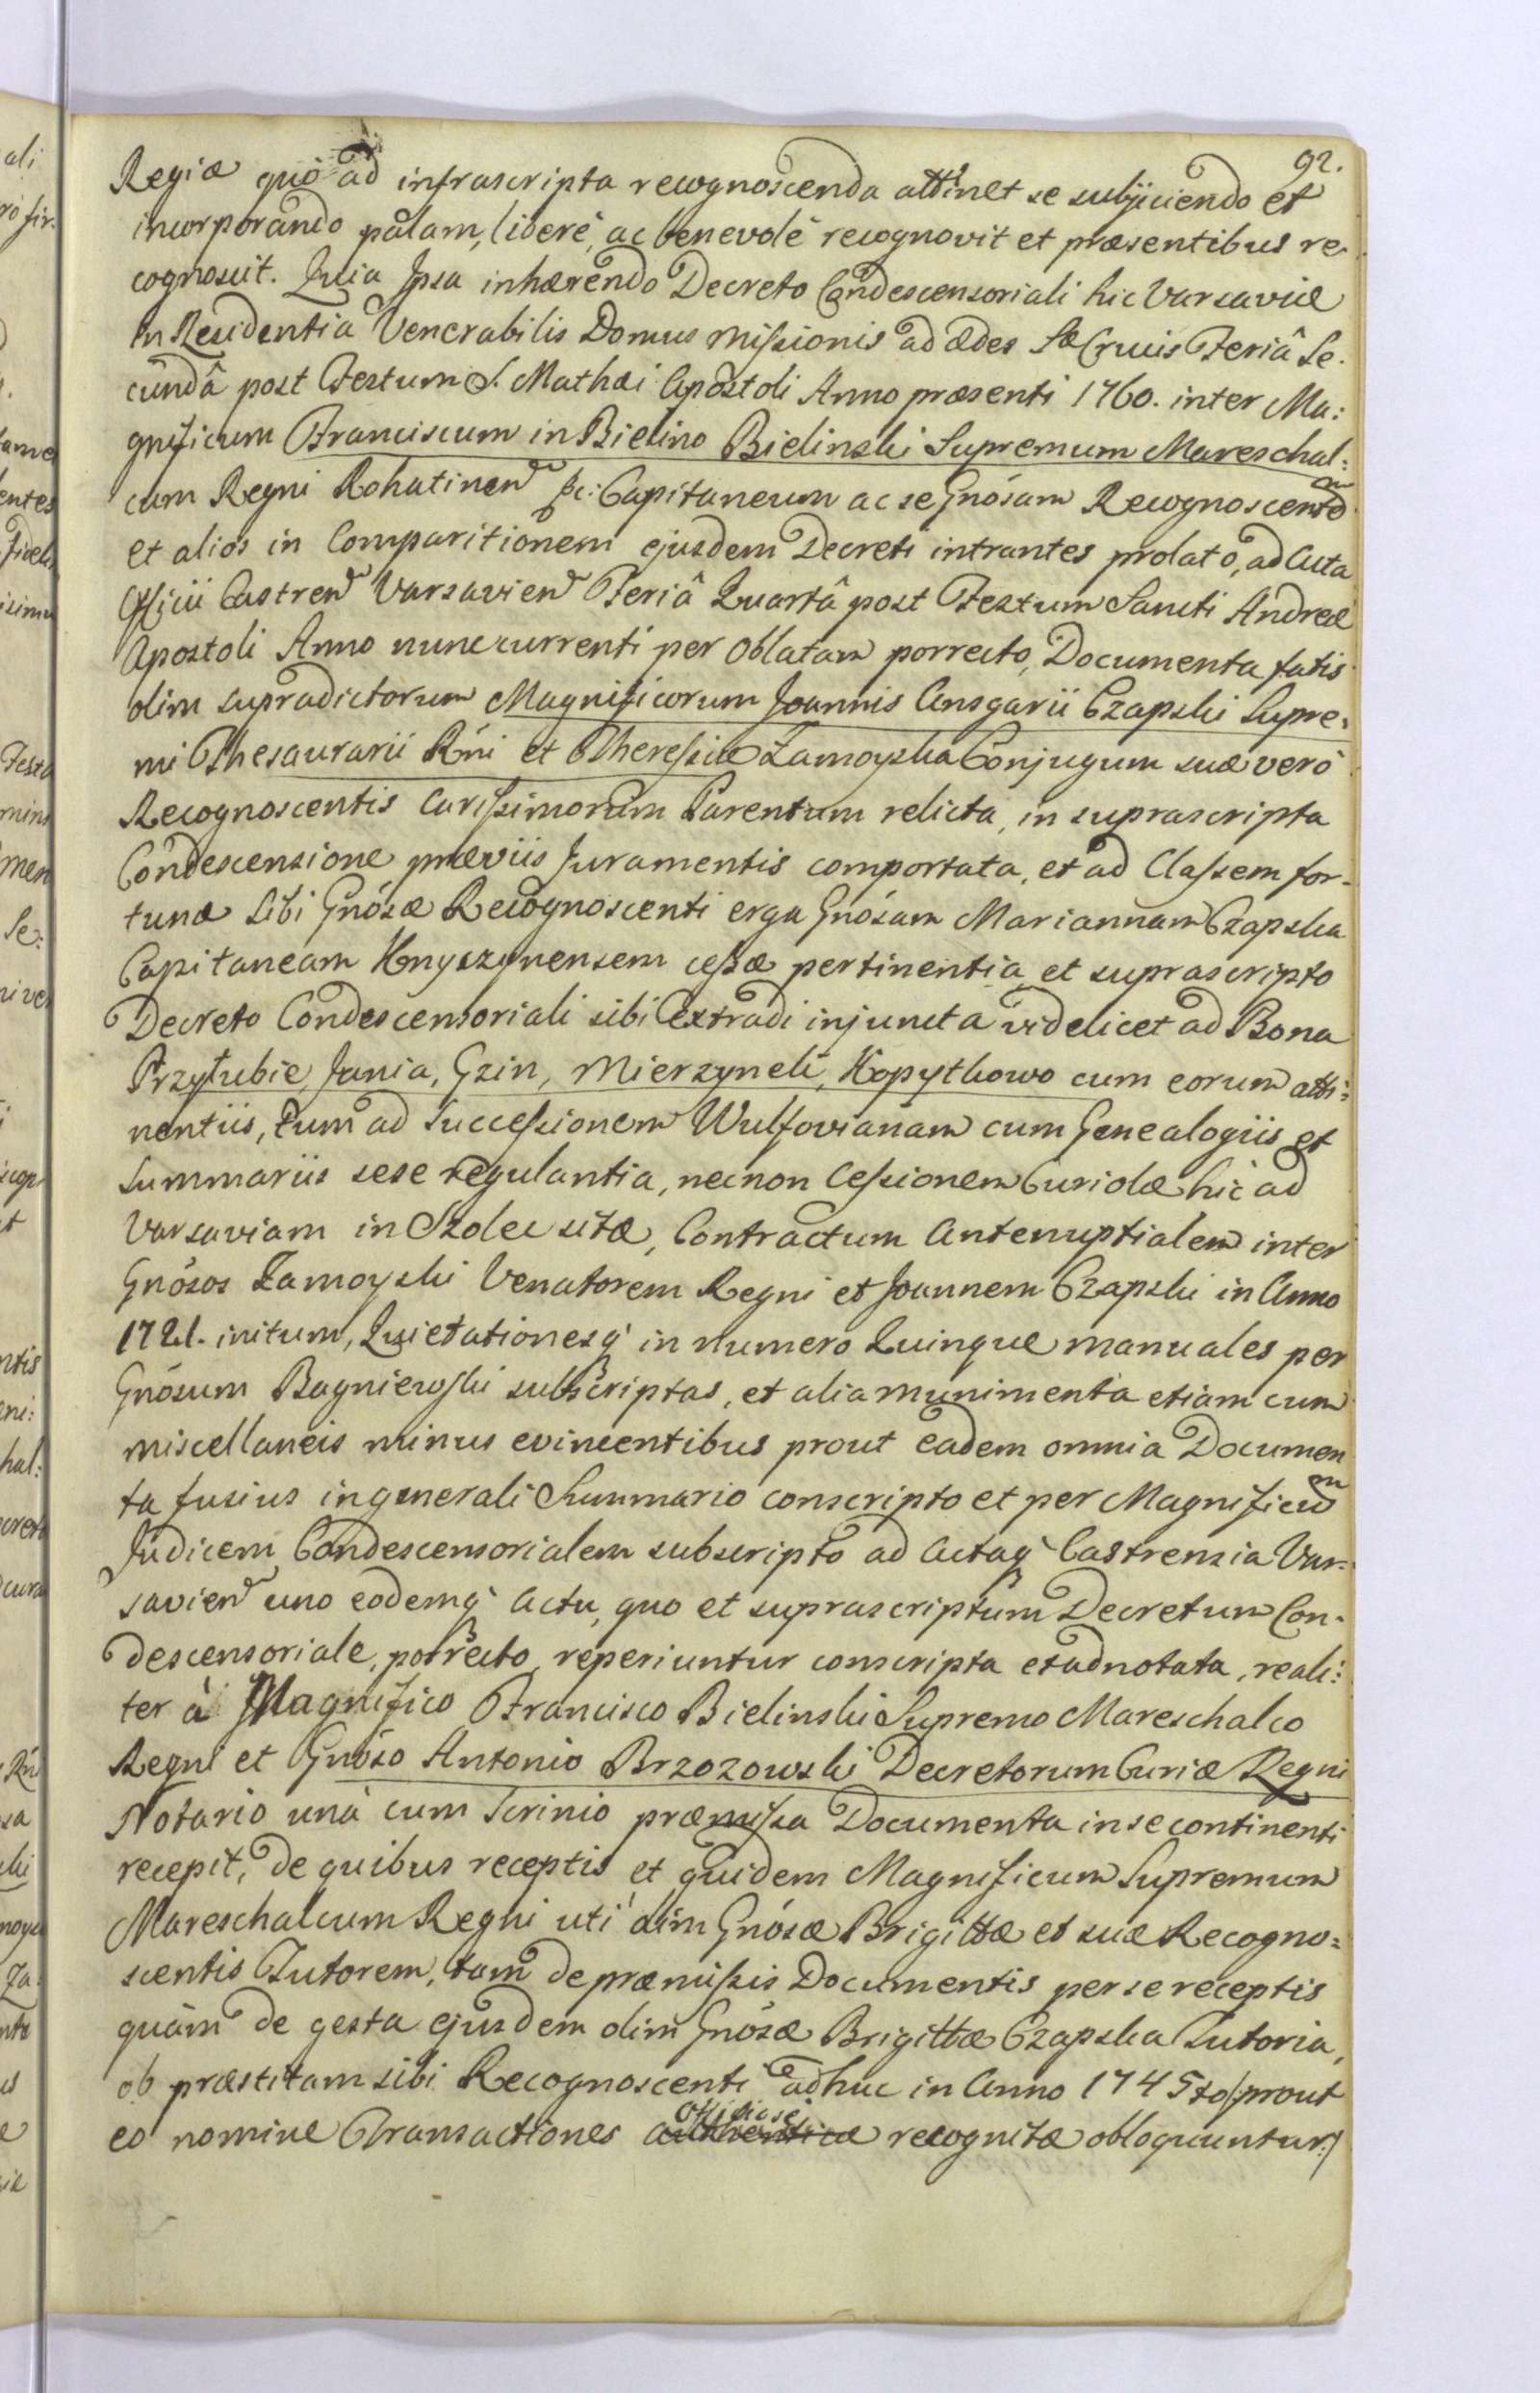 92.
Regiæ quò ad infrascripta recognoscenda attinet se subjiciendo et
incorporando palam, liberè, ac benevolè recognovit et præsentibus re-
cognoscit. Quia Ipsa inhærendo Decreto Condescensoriali hic Varsaviæ
in Residentia Venerabilis Domus Missionis ad Ædes Sæ Crucis Feriâ Se-
cundâ post Festum S. Mathæi Apostoli Anno præsenti 1760. inter Ma:
gnificum Franciscum in Bielino Bielinski Supremum Mareschal:
cum Regni Rohatinen &c: Capitaneum ac se Gnósam Recognoscentem
et alios in Comparitionem ejusdem Decreti intrantes prolato, ad Acta
Officii Castren Varsavien Feriâ Quartâ post Festum Sancti Andreæ
Apostoli Anno nunc currenti per Oblatam porrecto, Documenta fatis
olim supradictorum Magnificorum Joannis Ansgarii Czapski Supre:
mi Thesaurarii Rńi et Theressiæ Zamoyska Conjugum suæ verò
Recognoscentis Carissimorum Parentum relicta, in suprascripta
Condescensione præviis Juramentis comportata, et ad Classem for-
tunæ Sibi Gnósæ Recognoscenti erga Gnósam Mariannam Czapska
Capitaneam Knyszynensem cessæ pertinentia et suprascripto
Decreto Condescensoriali sibi extradi injuncta videlicet ad Bona
Przyłubie, Jania, Gzin, Mierzynek, Kopytkowo cum eorum atti:
nentiis, tum ad Successionem Wulfovianam cum Genealogiis et
Summariis sese regulantia, necnon Cessionem Curiolæ hic ad
Varsaviam in Szolec sitæ, Contractum Antenuptialem inter
Gnósos Zamoyski Venatorem Regni et Joannem Czapski in Anno
1721. initum, Quietationesq' in numero Quinque manuales per
Gnósum Bagniewski subscriptas, et alia munimenta etiam cum
miscellaneis minus evincentibus prout eadem omnia Documen
ta fusius in generali Summario conscripto et per Magnificum
Judicem Condescensorialem subscripto ad Actaq' Castrensia Var-
savien uno eodemq' Actu, quo et suprascriptum Decretum Con-
descensoriale, porrecto, reperiuntur conscripta et adnotata, reali:
ter à Magnifico Francisco Bielinski Supremo Mareschalco
Regni et Gnóso Antonio Brzozowski Decretorum Curiæ Regni
Notario unà cum Scrinio præmissa Documenta in se continenti
recepit, de quibus receptis et quidem Magnificum Supremum
Mareschalcum Regni uti olim Gnósæ Brigittæ et suæ Recogno=
scentis Tutorem, tam de præmissis Documentis per se receptis
quàm de gesta ejusdem olim Gnósæ Brigittæ Czapska Tutoria,
ob præstitam sibi Recognoscenti adhuc in Anno 1745to /:prout
Officiose
eo nomine Transactiones authenticæ recognitæ obloquuntur:/